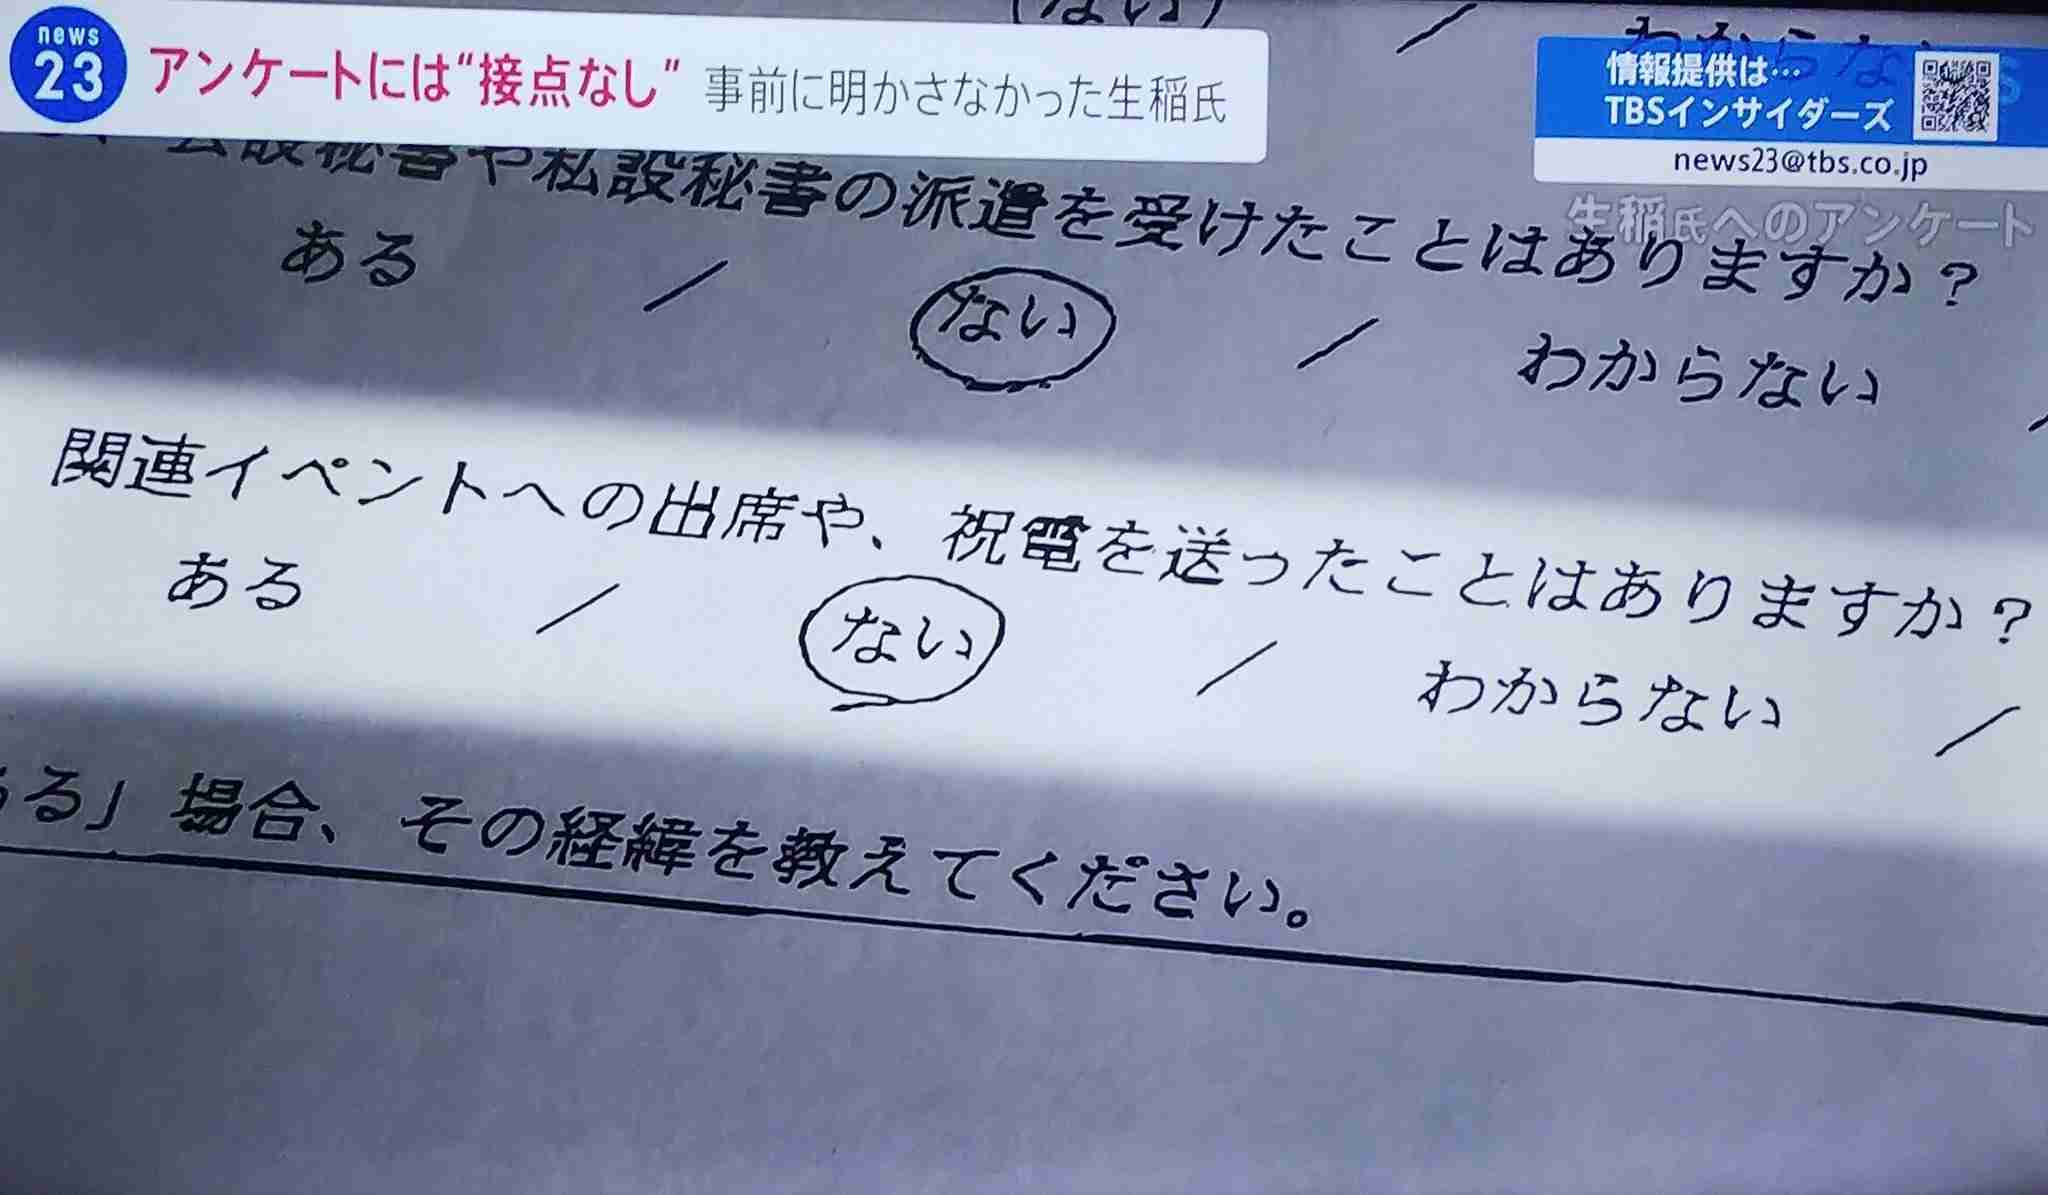 news
23
アンケートには“接点なし” 事前に明かさなかった生稲氏
情報提供は…
TBSインサイダーズ
news23@tbs.co.jp
生稲氏へのアンケート
ない / わからない
公設秘書や私設秘書の派遣を受けたことはありますか？
ある / ない / わからない /
関連イベントへの出席や、祝電を送ったことはありますか？
ある / ない / わからない /
ある」場合、その経緯を教えてください。